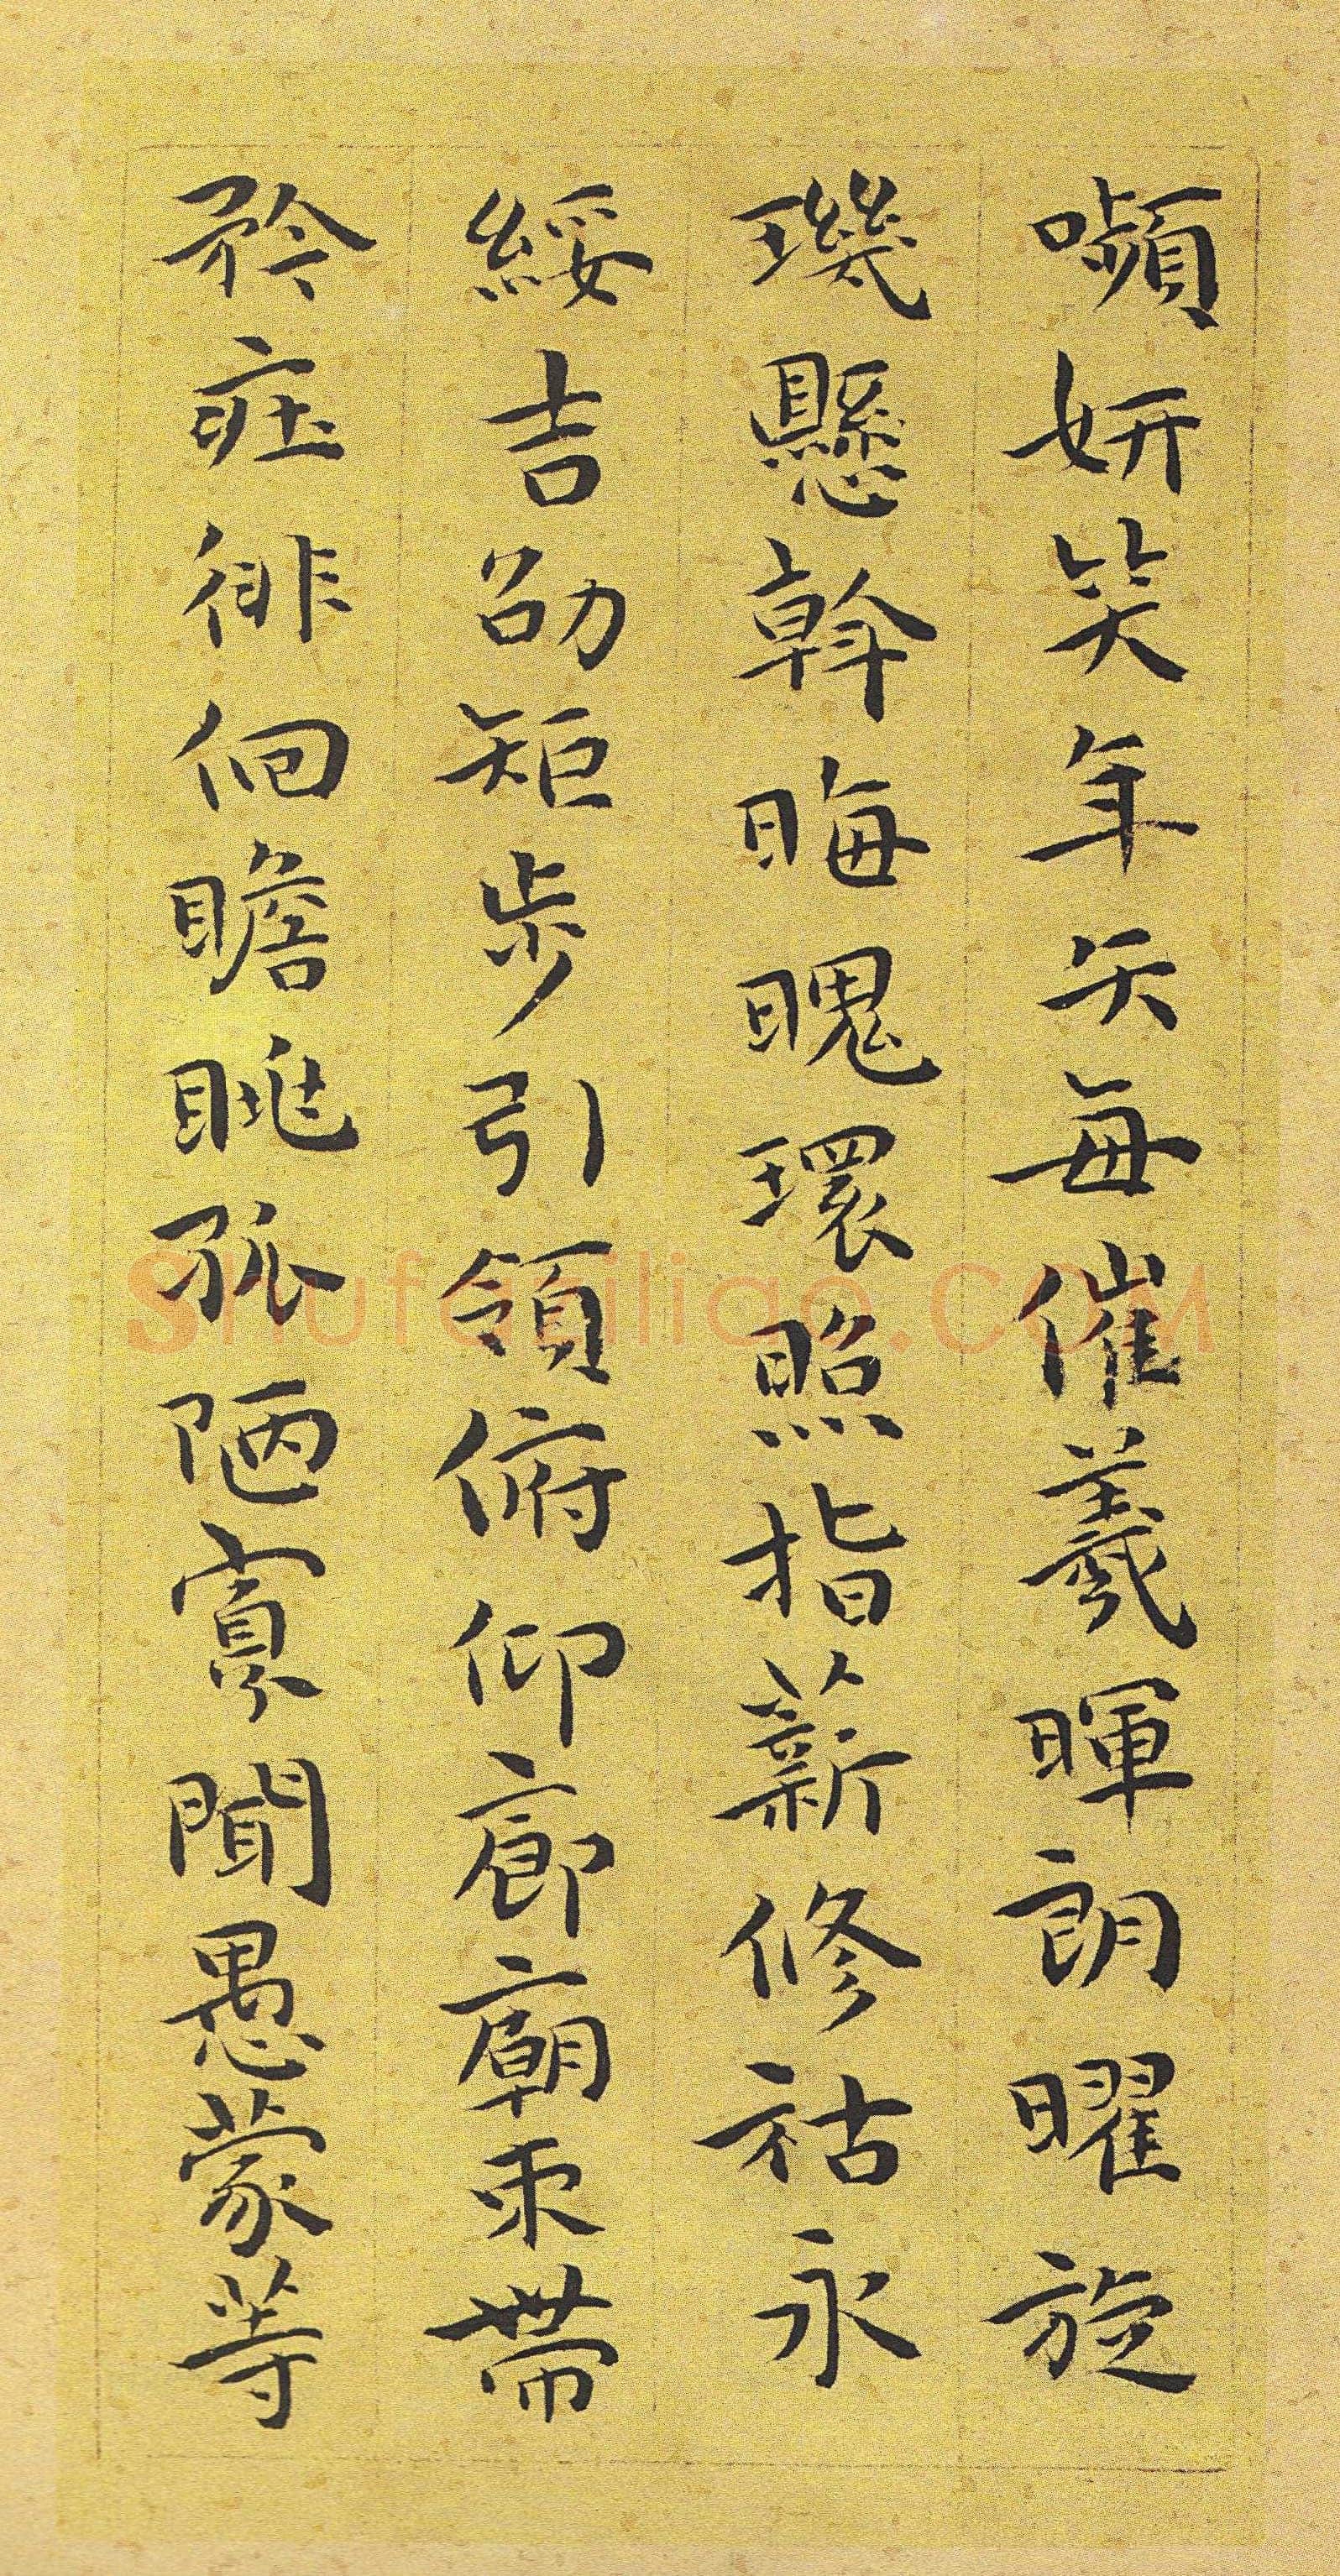 嚬妍笑年矢每催羲暉朗曜旋
璣懸斡晦魄環照指薪修祜永
綏吉劭矩步引領俯仰廊廟束帶
矜莊徘徊瞻眺孤陋寡聞愚蒙等
Shufaziliao.COM